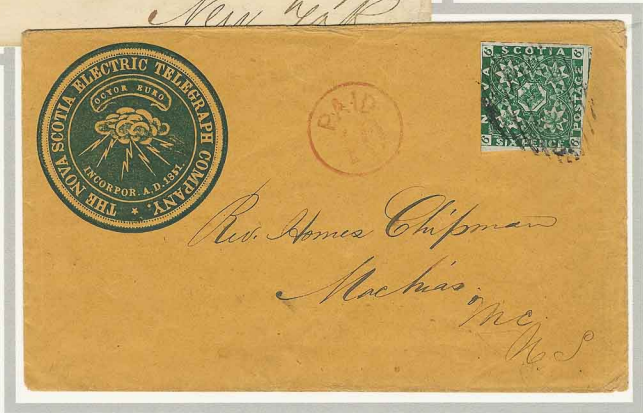 New York
THE NOVA SCOTIA ELECTRIC TELEGRAPH COMPANY.
OCYOR EURO
INCORPOR. A.D. 1851.
PAID
NOVA SCOTIA POSTAGE SIX PENCE
6 6 6 6
Rev. Homes Chipman
Machias
Me.
U S